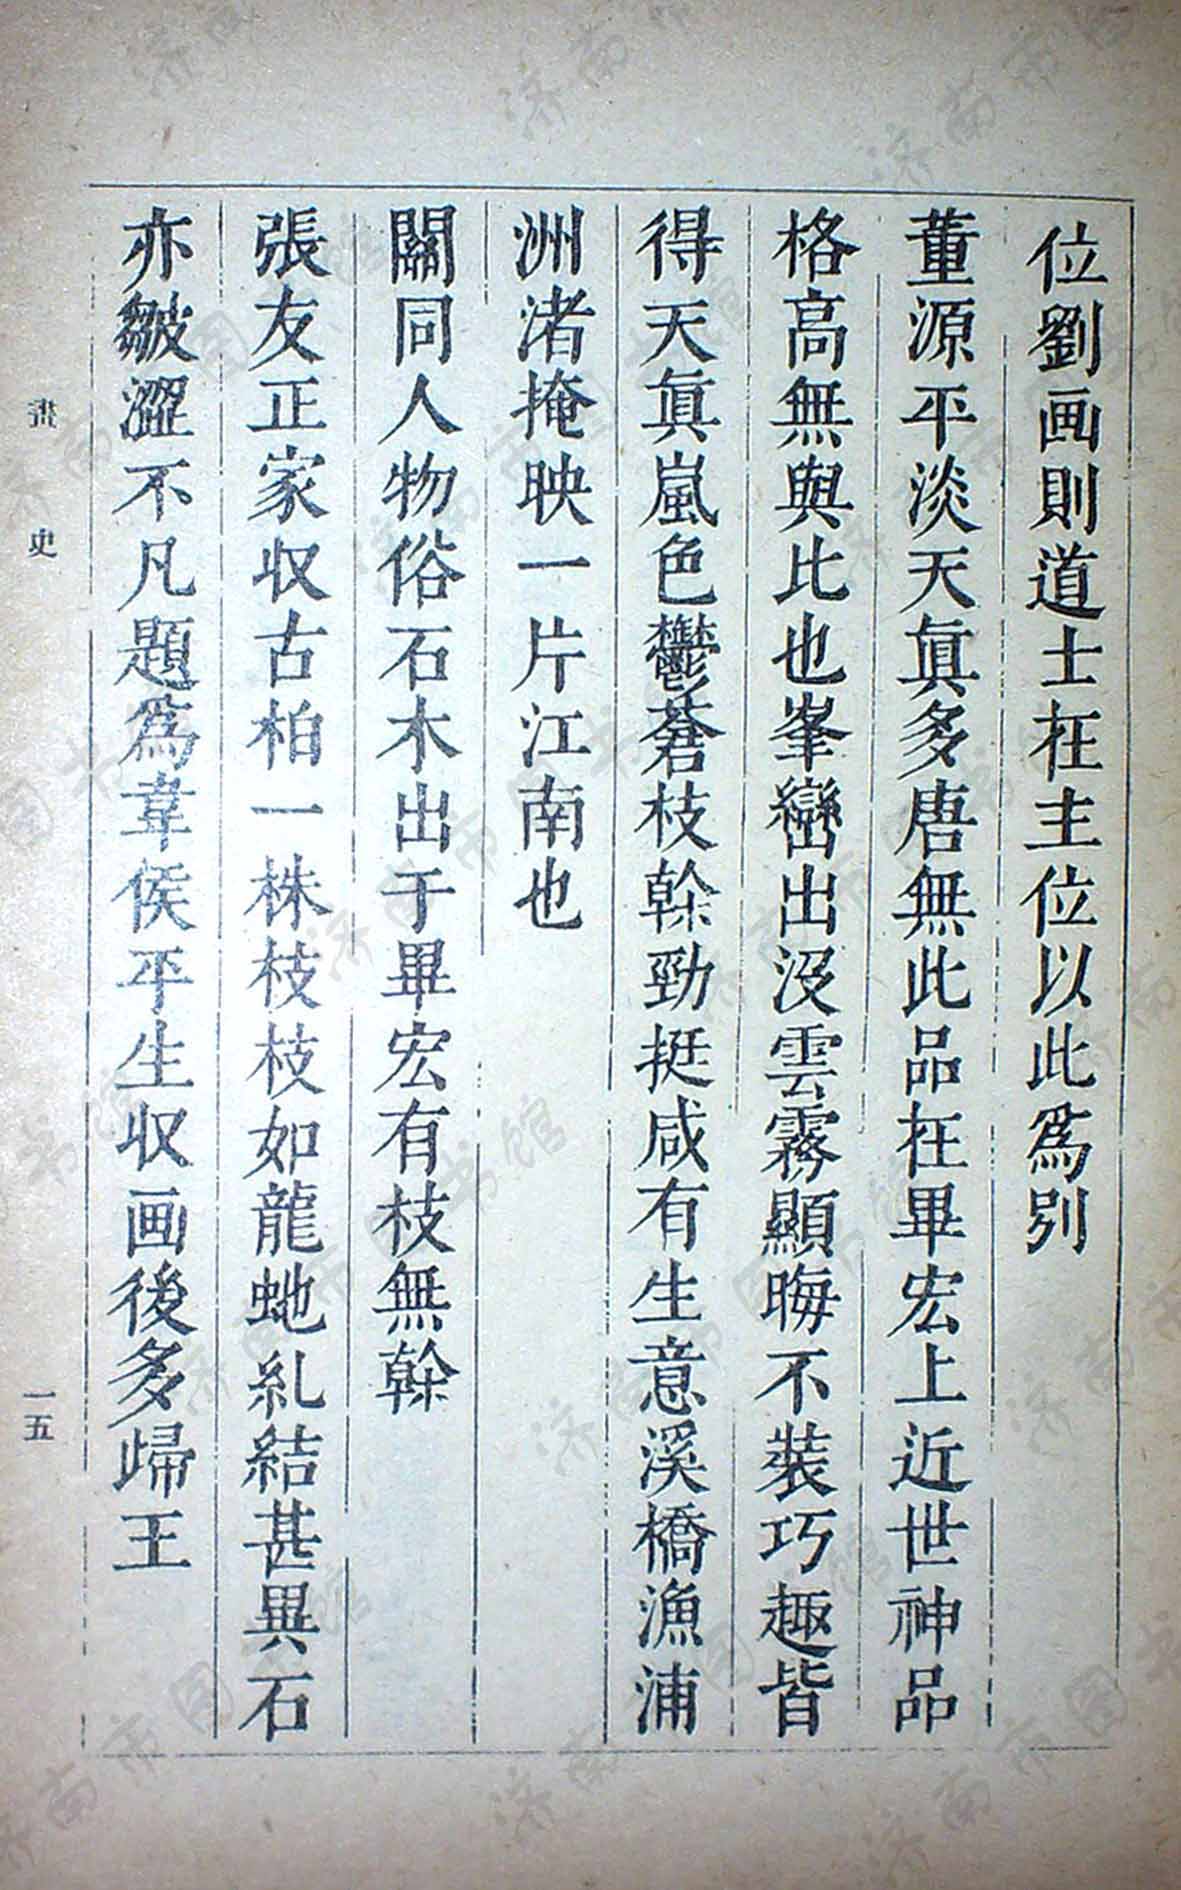 位劉画則道士在主位以此爲別
董源平淡天眞多唐無此品在畢宏上近世神品
格高無與比也峯巒出沒雲霧顯晦不裝巧趣皆
得天眞嵐色鬱蒼枝幹勁挺咸有生意溪橋漁浦
洲渚掩映一片江南也
關同人物俗石木出于畢宏有枝無幹
張友正家収古柏一株枝枝如龍虵糺結甚異石
亦皴澀不凡題爲韋侯平生収画後多歸王
畫史
一五
济南市图书馆